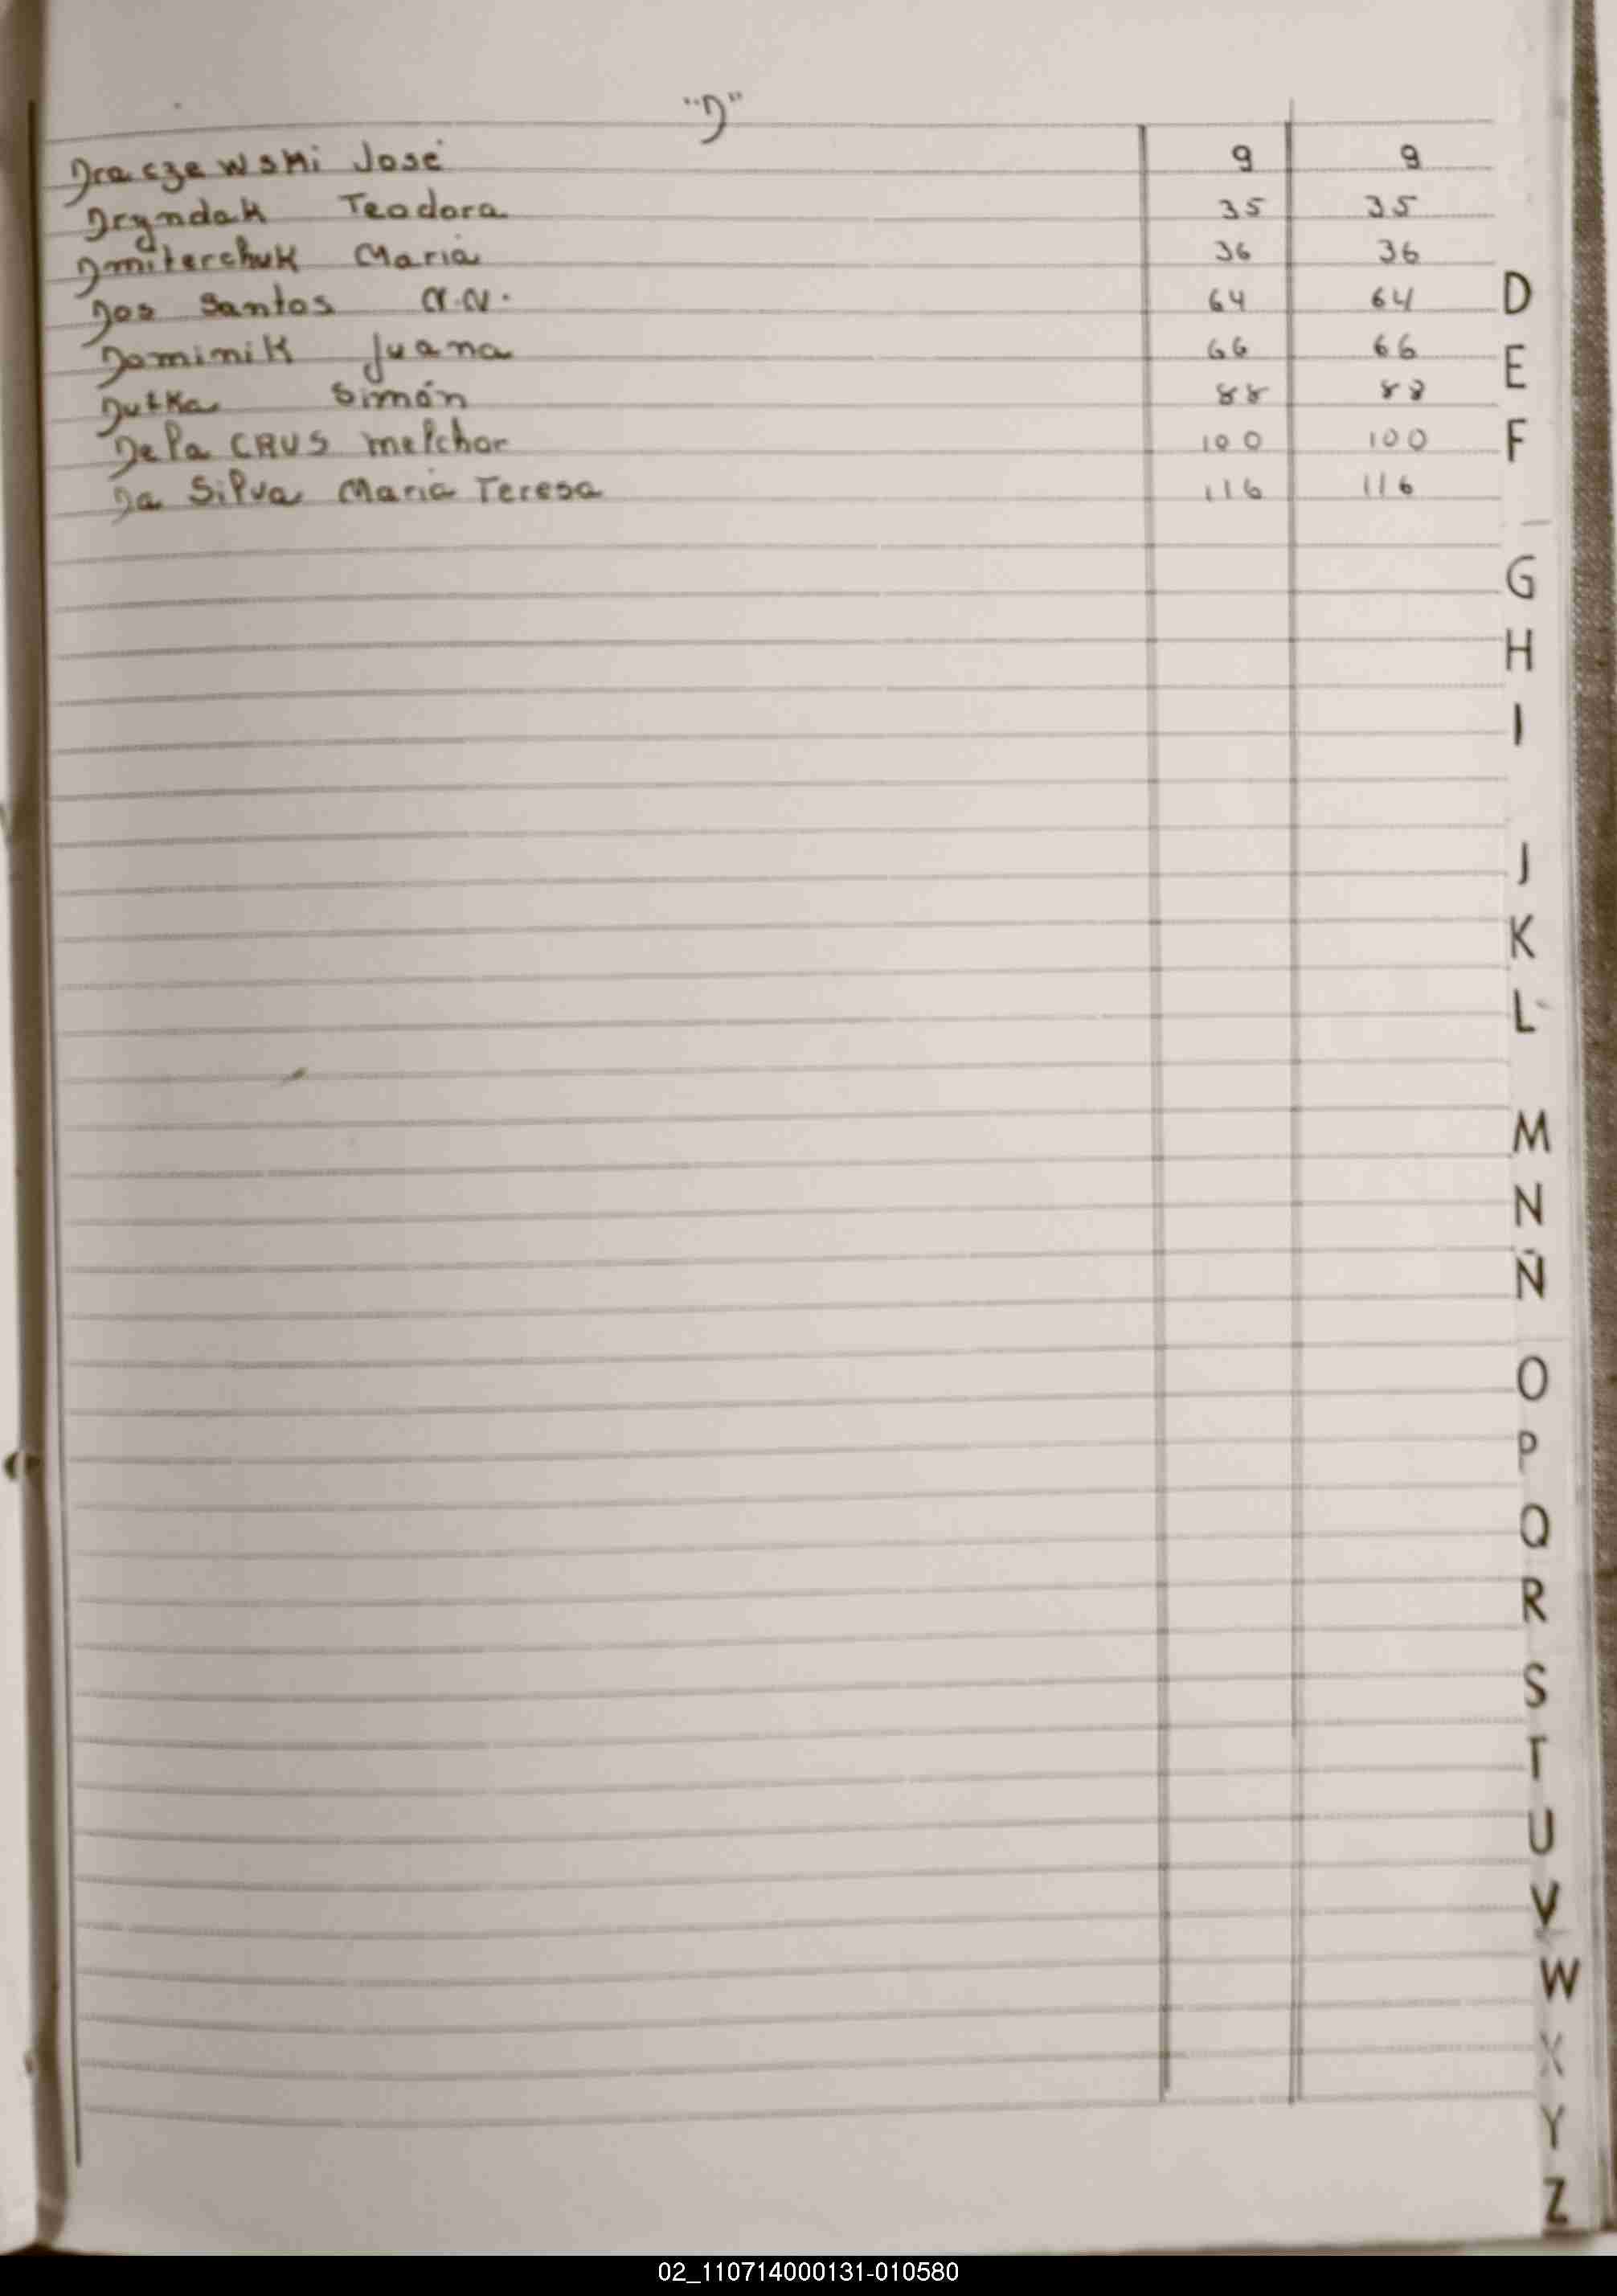 "D"
Draczewski José 9 9
Dryndak Teodora 35 35
Dmiterchuk Maria 36 36
Dos Santos N.N. 64 64
Dominik Juana 66 66
Dutka Simón 88 88
De la CRUS melchor 100 100
Da Silva Maria Teresa 116 116
D
E
F
G
H
I
J
K
L
M
N
Ñ
O
P
Q
R
S
T
U
V
W
X
Y
Z
02_110714000131-010580